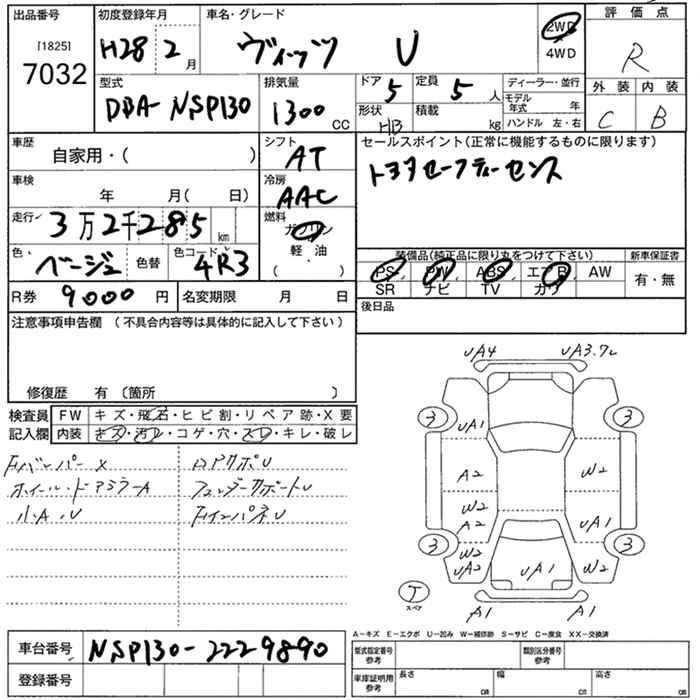 出品番号
[1825]
7032
初度登録年月
H28 2 月
車名・グレード
ヴィッツ U
2WD
4WD
評価点
R
型式
DBA-NSP130
排気量
1300 CC
ドア 5
定員 5 人
形状 HB
積載 kg
ディーラー・並行
モデル年式 年
ハンドル 左・右
外装 内装
C B
車歴
自家用・( )
シフト
AT
セールスポイント(正常に機能するものに限ります)
トヨタセーフティーセンス
車検
年 月( 日)
冷房
AAC
走行
3万2千285 km
燃料
ガソリン
軽・油
( )
色
ベージュ
色替
色コード
4R3
装備品(純正品に限り丸をつけて下さい)
PS PW ABS エアB AW
SR ナビ TV カワ
新車保証書
有・無
R券 9000 円
名変期限 月 日
後日品
注意事項申告欄 (不具合内容等は具体的に記入して下さい)
修復歴 有 (箇所 )
検査員記入欄
FW キズ・飛石・ヒビ割・リペア跡・X要
内装 キズ・汚レ・コゲ・穴・スレ・キレ・破レ
Fバンパー X
ホイール・ドアミラーA
小A.U
ロアサポU
フェンダーサポートU
Fインパネ U
UA4
UA3.7L
3
3
UA1
A2
W2
W2
A2
UA1
3
3
W2
UA2
UA1
W2
A1
A1
T
スペア
A－キズ E－エクボ U－凹み W－補修跡 S－サビ C－腐食 XX－交換済
車台番号 NSP130-2229890
登録番号
型式指定番号 参考
類別区分番号 参考
車庫証明用 参考
長さ cm
幅 cm
高さ cm